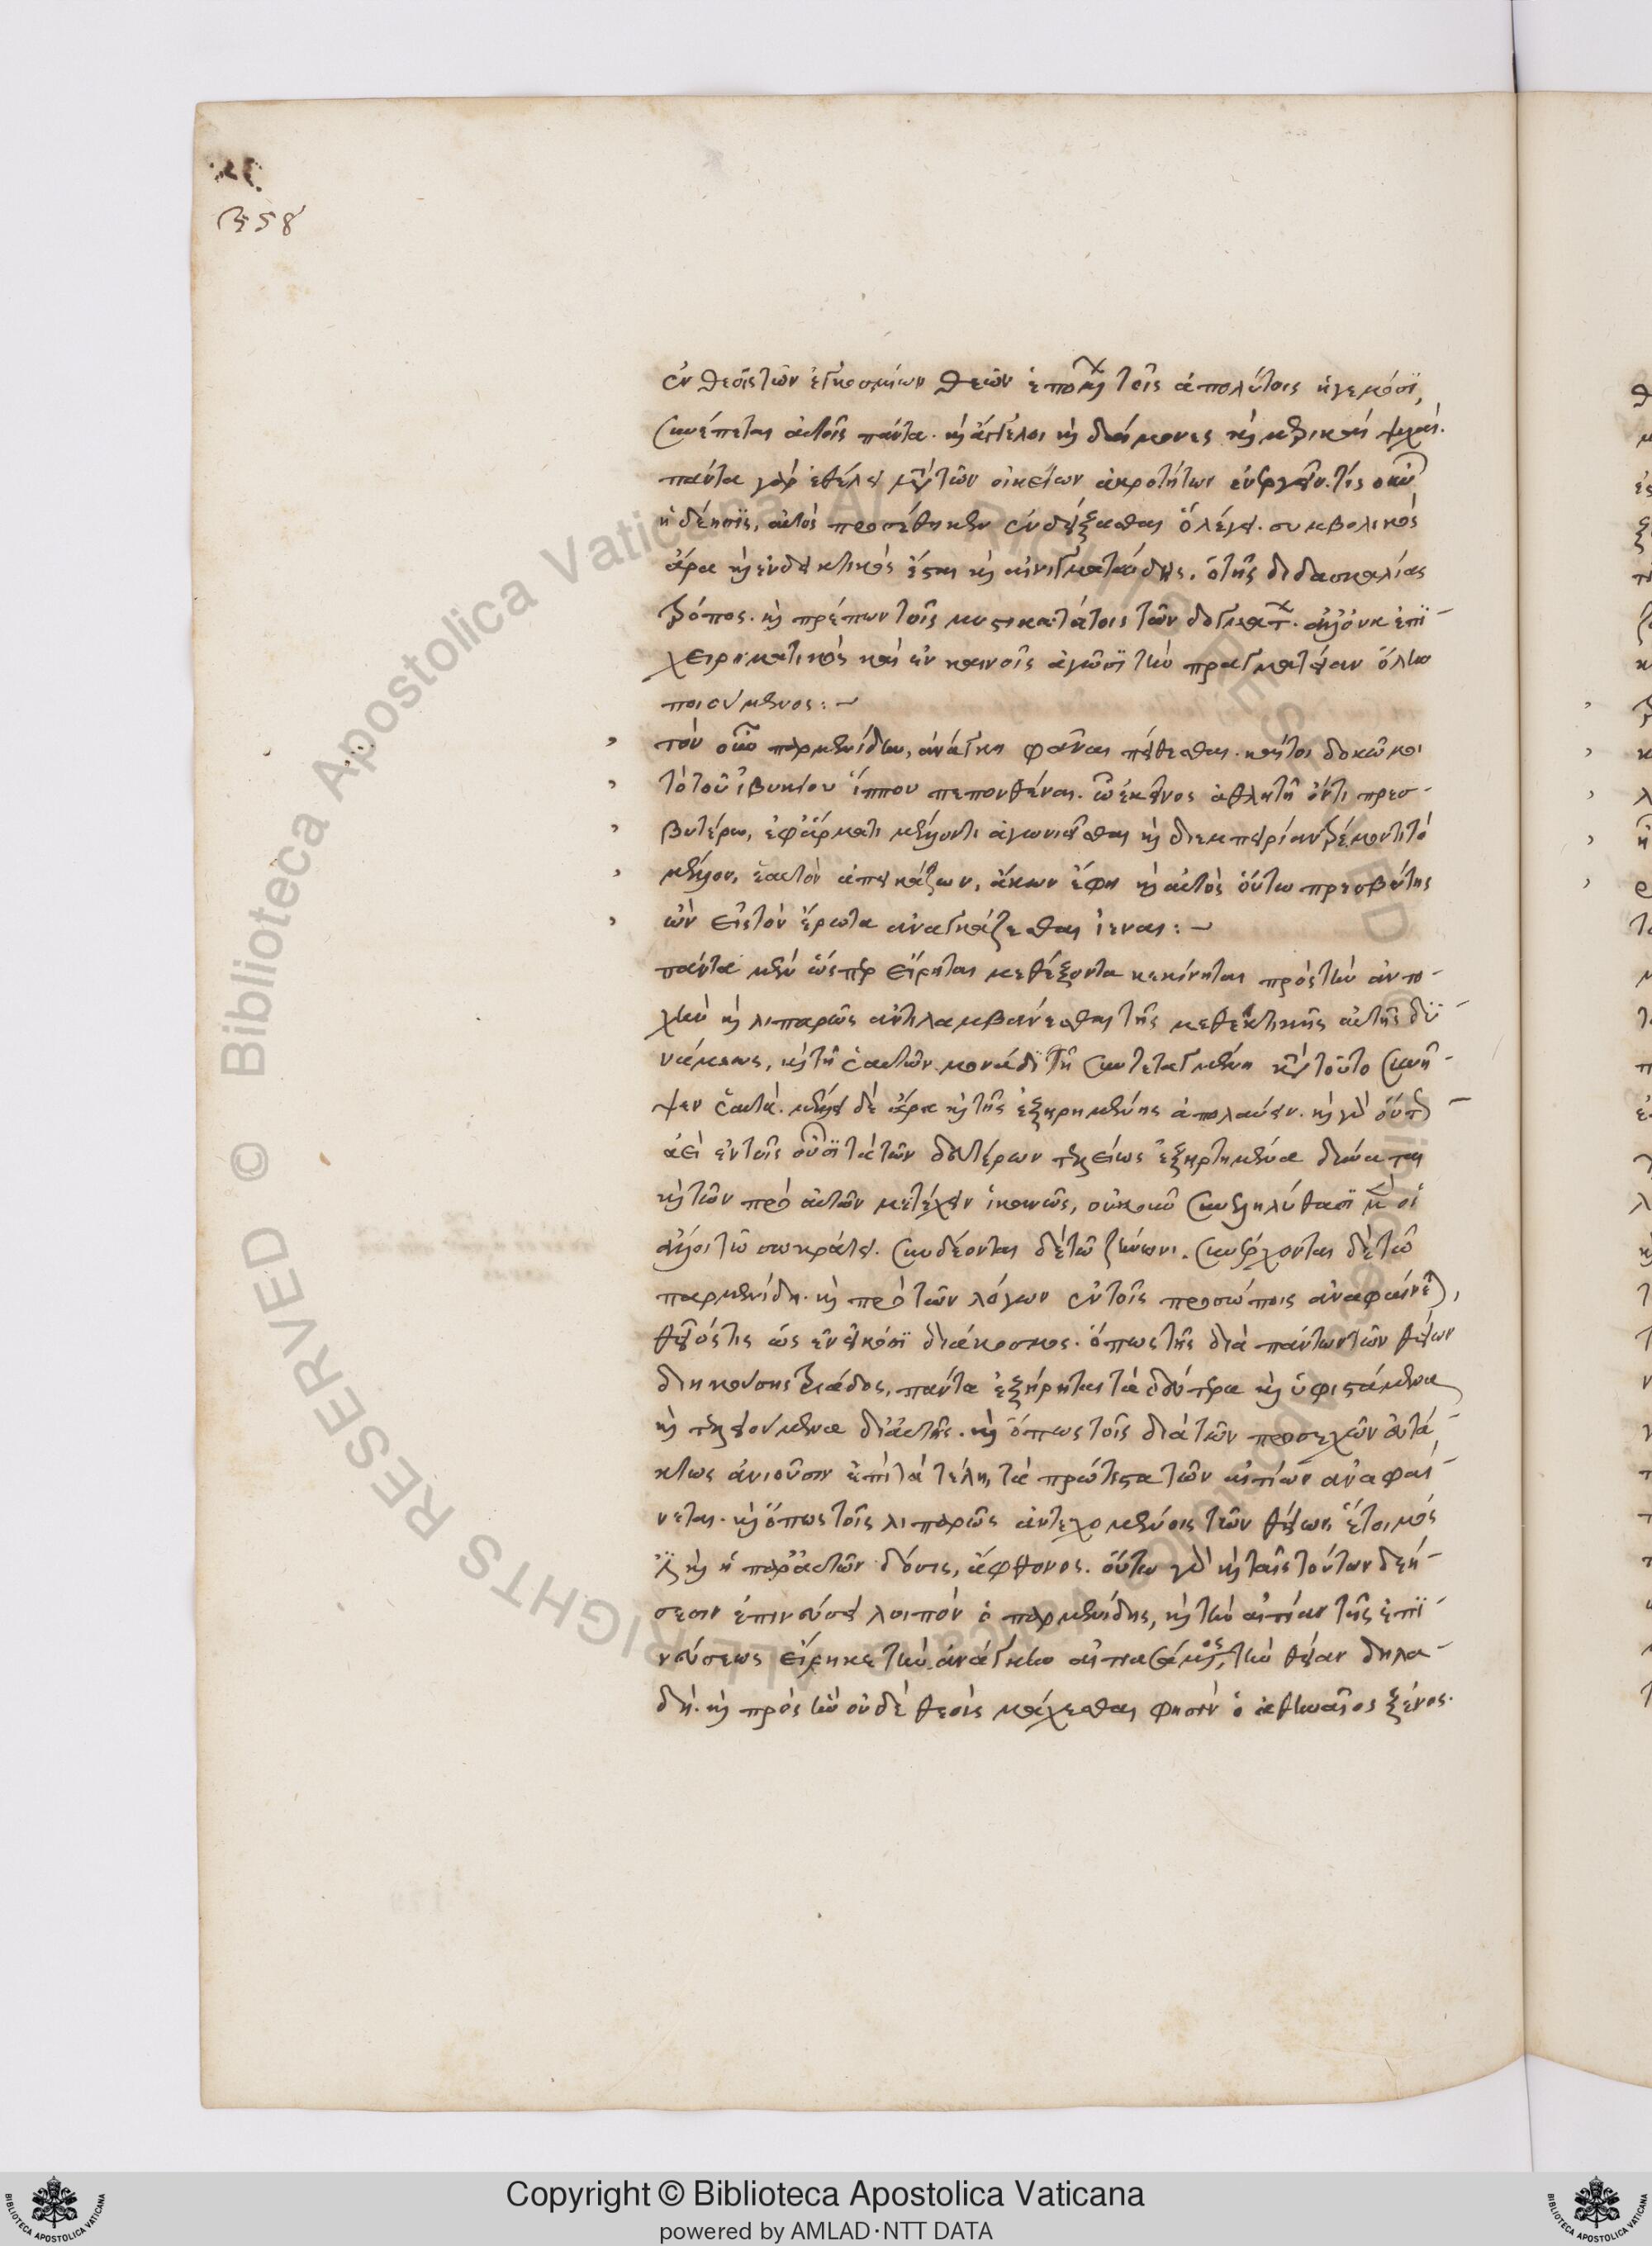 358
ἐν θεοῖς τῶν ἐγκοσμίων θεῶν ἑπομένων τοῖς ἀπολύτοις ἡγεμόσι,
συνέπεται αὐτοῖς πάντα. καὶ ἄγγελοι καὶ δαίμονες καὶ μερικαὶ ψυχαί.
πάντα γὰρ ἐθέλει μετὰ τῶν οἰκείων ἀκροτήτων ἐνεργεῖν. τίς οὖν
ἡ δέησις, αὐτὸς προσέθηκεν ἐνδείξασθαι ὃ λέγει. συμβολικὸς
ἄρα καὶ ἐνδεικτικός ἐστι καὶ αἰνιγματώδης, ὁ τῆς διδασκαλίας
τρόπος. καὶ πρέπων τοῖς μυστικωτάτοις τῶν δογμάτων. ἀλλ' οὐκ ἐπι-
χειρηματικὸς καὶ ἐν κοινοῖς ἀγῶσι τὴν πραγματείαν ὅλην
ποιούμενος:~
τὸν οὖν παρμενίδην, ἀνάγκη φᾶναι πείθεσθαι. καίτοι δοκῶ μοι
τὸ τοῦ ἰβυκείου ἵππου πεπονθέναι. ᾧ ἐκεῖνος ἀθλητῇ ὄντι πρεσ-
βυτέρω, ἐφ' ἅρματι μέλλοντι ἀγωνιεῖσθαι καὶ δι' ἐμπειρίαν τρέμοντι τὸ
μέλλον, ἑαυτὸν ἀπεικάζων, ἄκων ἔφη καὶ αὐτὸς οὕτω πρεσβύτης
ὢν εἰς τὸν ἔρωτα ἀναγκάζεσθαι ἰέναι:~
πάντα μὲν ὥσπερ εἴρηται μεθέξοντα κεκίνηται πρὸς τὴν ἀντο-
χὴν καὶ λιπαρῶς ἀντιλαμβάνεσθαι τῆς μεθεκτικῆς αὐτῆς δυ-
νάμεως, καὶ τῇ ἑαυτῶν μονάδι τῇ συντεταγμένη κατὰ τοῦτο συνῆ-
ψεν ἑαυτά. μέλλει δὲ ἄρα καὶ τῆς ἐξῃρημένης ἀπολαύειν. καὶ γὰρ οὕτως
ἀεὶ ἐν τοῖς οὖσι τὰ τῶν δευτέρων τελείως ἐξηρτημένα δύναται
καὶ τῶν πρὸ αὐτῶν μετέχειν ἱκανῶς, οὐκοῦν συνεληλύθασι μὲν οἱ
ἄλλοι τῷ σωκράτει. συνδέονται δὲ τῷ ζήνωνι. συνέρχονται δὲ τῷ
παρμενίδη. καὶ πρὸ τῶν λόγων ἐν τοῖς προσώποις ἀναφαίνεται,
θεῖός τις ὡς ἐν εἰκόσι διάκοσμος. ὅπως τῆς διὰ πάντων τῶν θείων
διηκούσης τριάδος, πάντα ἐξήρτηται τὰ δεύτερα καὶ ὑφιστάμενα
καὶ τελειούμενα δι' αὐτῆς. καὶ ὅπως τοῖς διὰ τῶν προσεχῶν εὐτά-
κτως ἀνιοῦσιν ἐπὶ τὰ τέλη, τὰ πρώτιστα τῶν αἰτίων ἀναφαί-
νεται. καὶ ὅπως τοῖς λιπαρῶς ἀντεχομένοις τῶν θείων, ἕτοιμός
ἐστι καὶ ἡ παρ' αὐτῶν δόσις, ἄφθονος. οὕτω γὰρ καὶ ταῖς τούτων δεή-
σεσιν ἐπινεύσει λοιπὸν ὁ παρμενίδης, καὶ τὴν αἰτίαν τῆς ἐπι-
νεύσεως εἴρηκε τὴν ἀνάγκην αἰτιασάμενος, τὴν θείαν δηλα-
δή. καὶ πρὸς ἣν οὐδὲ θεοῖς μάχεσθαι φησὶν ὁ ἀθηναῖος ξένος.
Copyright © Biblioteca Apostolica Vaticana
powered by AMLAD·NTT DATA